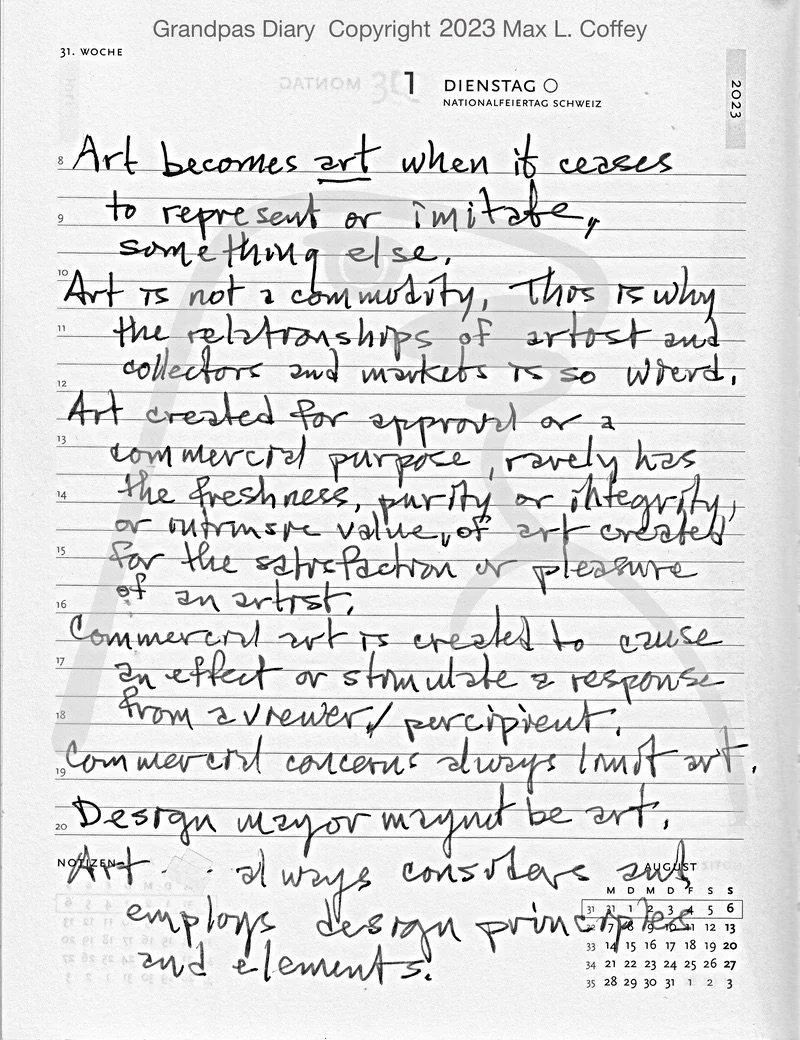 Grandpas Diary  Copyright 2023 Max L. Coffey
31. WOCHE
1 DIENSTAG
NATIONALFEIERTAG SCHWEIZ
2023
8 Art becomes art when it ceases
9 to represent or imitate,
something else.
10 Art is not a commodity, This is why
11 the relationships of artist and
collectors and markets is so wierd.
12
Art created for approval or a
13 commercial purpose, rarely has
14 the freshness, purity or integrity,
or intrinsic value, of art created
15 for the satisfaction or pleasure
of an artist.
16
Commercial art is created to cause
17 an effect or stimulate a response
18 from a viewer/percipient.
Commercial concerns always limit art.
19
Design may or may not be art.
20
NOTIZEN
Art always considers and
employs design principles
and elements.
AUGUST
M D M D F S S
31 31 1 2 3 4 5 6
32 7 8 9 10 11 12 13
33 14 15 16 17 18 19 20
34 21 22 23 24 25 26 27
35 28 29 30 31 1 2 3